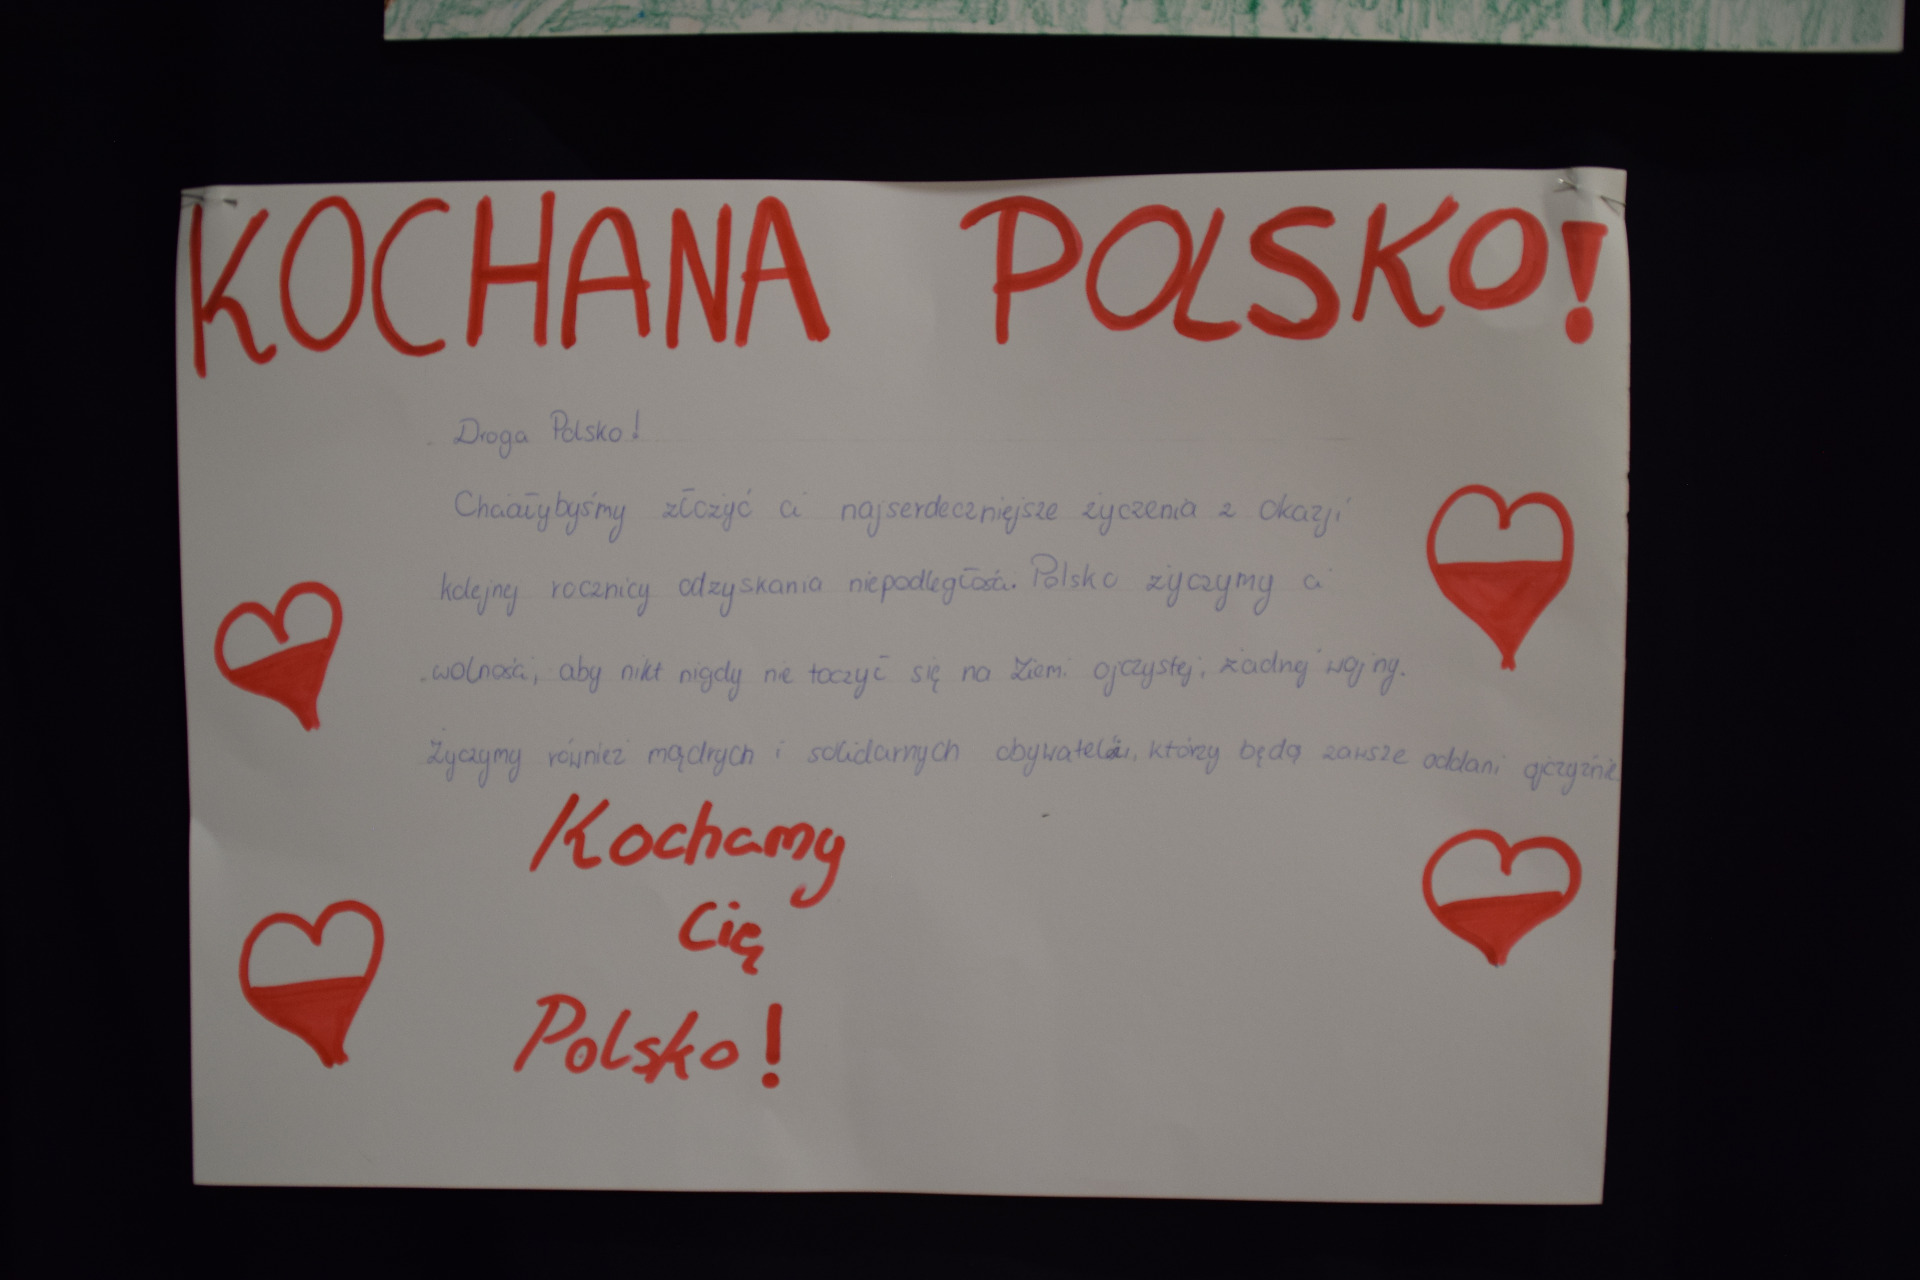 KOCHANA POLSKO!
Droga Polsko!
Chciałybyśmy złożyć ci najserdeczniejsze życzenia z okazji
kolejnej rocznicy odzyskania niepodległości. Polsko życzymy ci
wolności, aby nikt nigdy nie toczyć się na Ziemi ojczystej, żadnej wojny.
Życzymy również mądrych i solidarnych obywateli, którzy będą zawsze oddani ojczyźnie
Kochamy
Cię
Polsko!